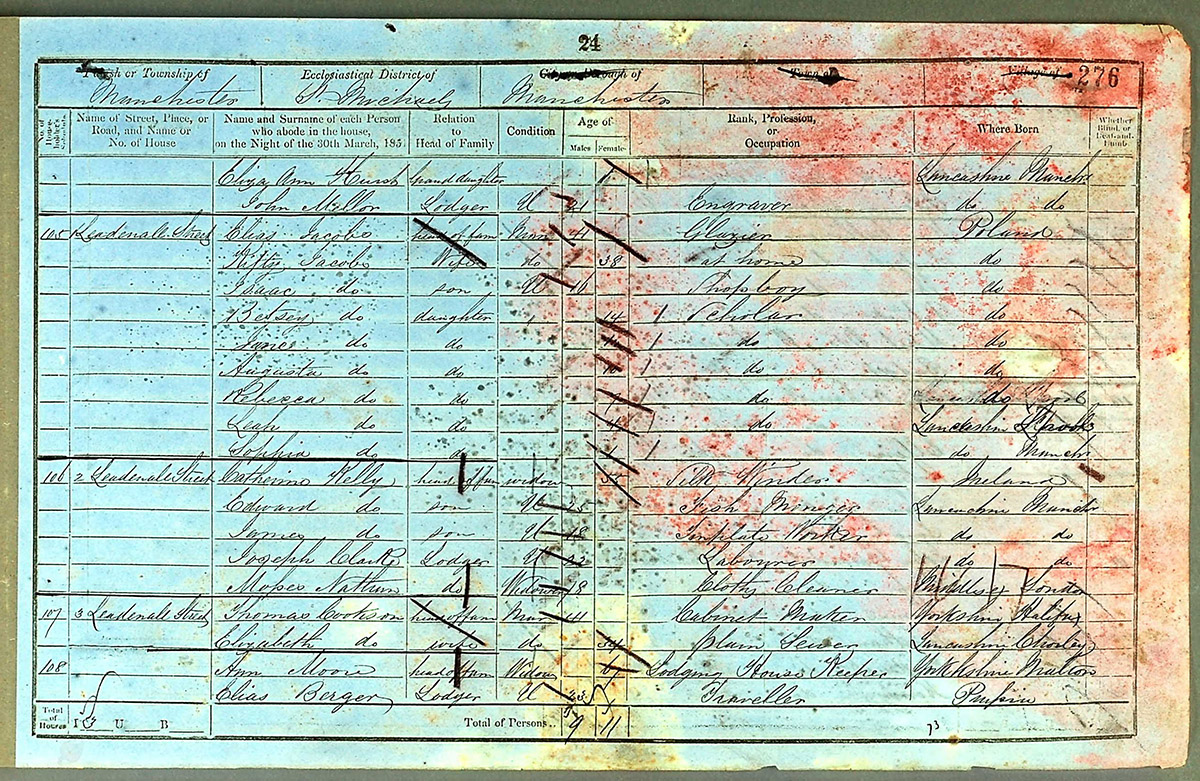 24
Parish or Township of Ecclesiastical District of City or Borough of Town of Village of 276
Manchester St. Michaels Manchester
No. of House-holder's Schedule Name of Street, Place, or Road, and Name or No. of House Name and Surname of each Person who abode in the house, on the Night of the 30th March, 1851 Relation to Head of Family Condition Age of Males Females Rank, Profession, or Occupation Where Born Whether Blind, or Deaf-and-Dumb
Eliza Ann Granddaughter Lancashire Manchr
John Mellor Lodger U 21 Engraver do do
105 1 Leadenale Street Elias Jacobs head of fam Mar Glazier Poland
Jacobs Wife do 38 at home do
Isaac do son U 16 Shop boy do
Betsey do daughter 14 Scholar do
do do do do
Augusta do do do do
Rebecca do do do
Leah do do do Lancashire
Sophia do do do Manchr
106 2 Leadenale Street Catherine Kelly head of fam widow 55 Silk Winder Ireland
Edward do son U 25 Lancashire Manchr
James do son U 18 Tinplate Worker do do
Joseph Clark Lodger U 22 Labourer do do
Moses Nathan do Widower Cloths Cleaner Middlesex London
107 3 Leadenale Street Thomas Cookson head of fam Mar Cabinet Maker Yorkshire Halifax
Elizabeth do wife do Plain Sewer Lancashire Chorley
108 Ann Moore head of fam Widow Lodging House Keeper Yorkshire Malton
Elias Berger Lodger U 23 Traveller
Total of Houses I U B Total of Persons.. 9 11 73